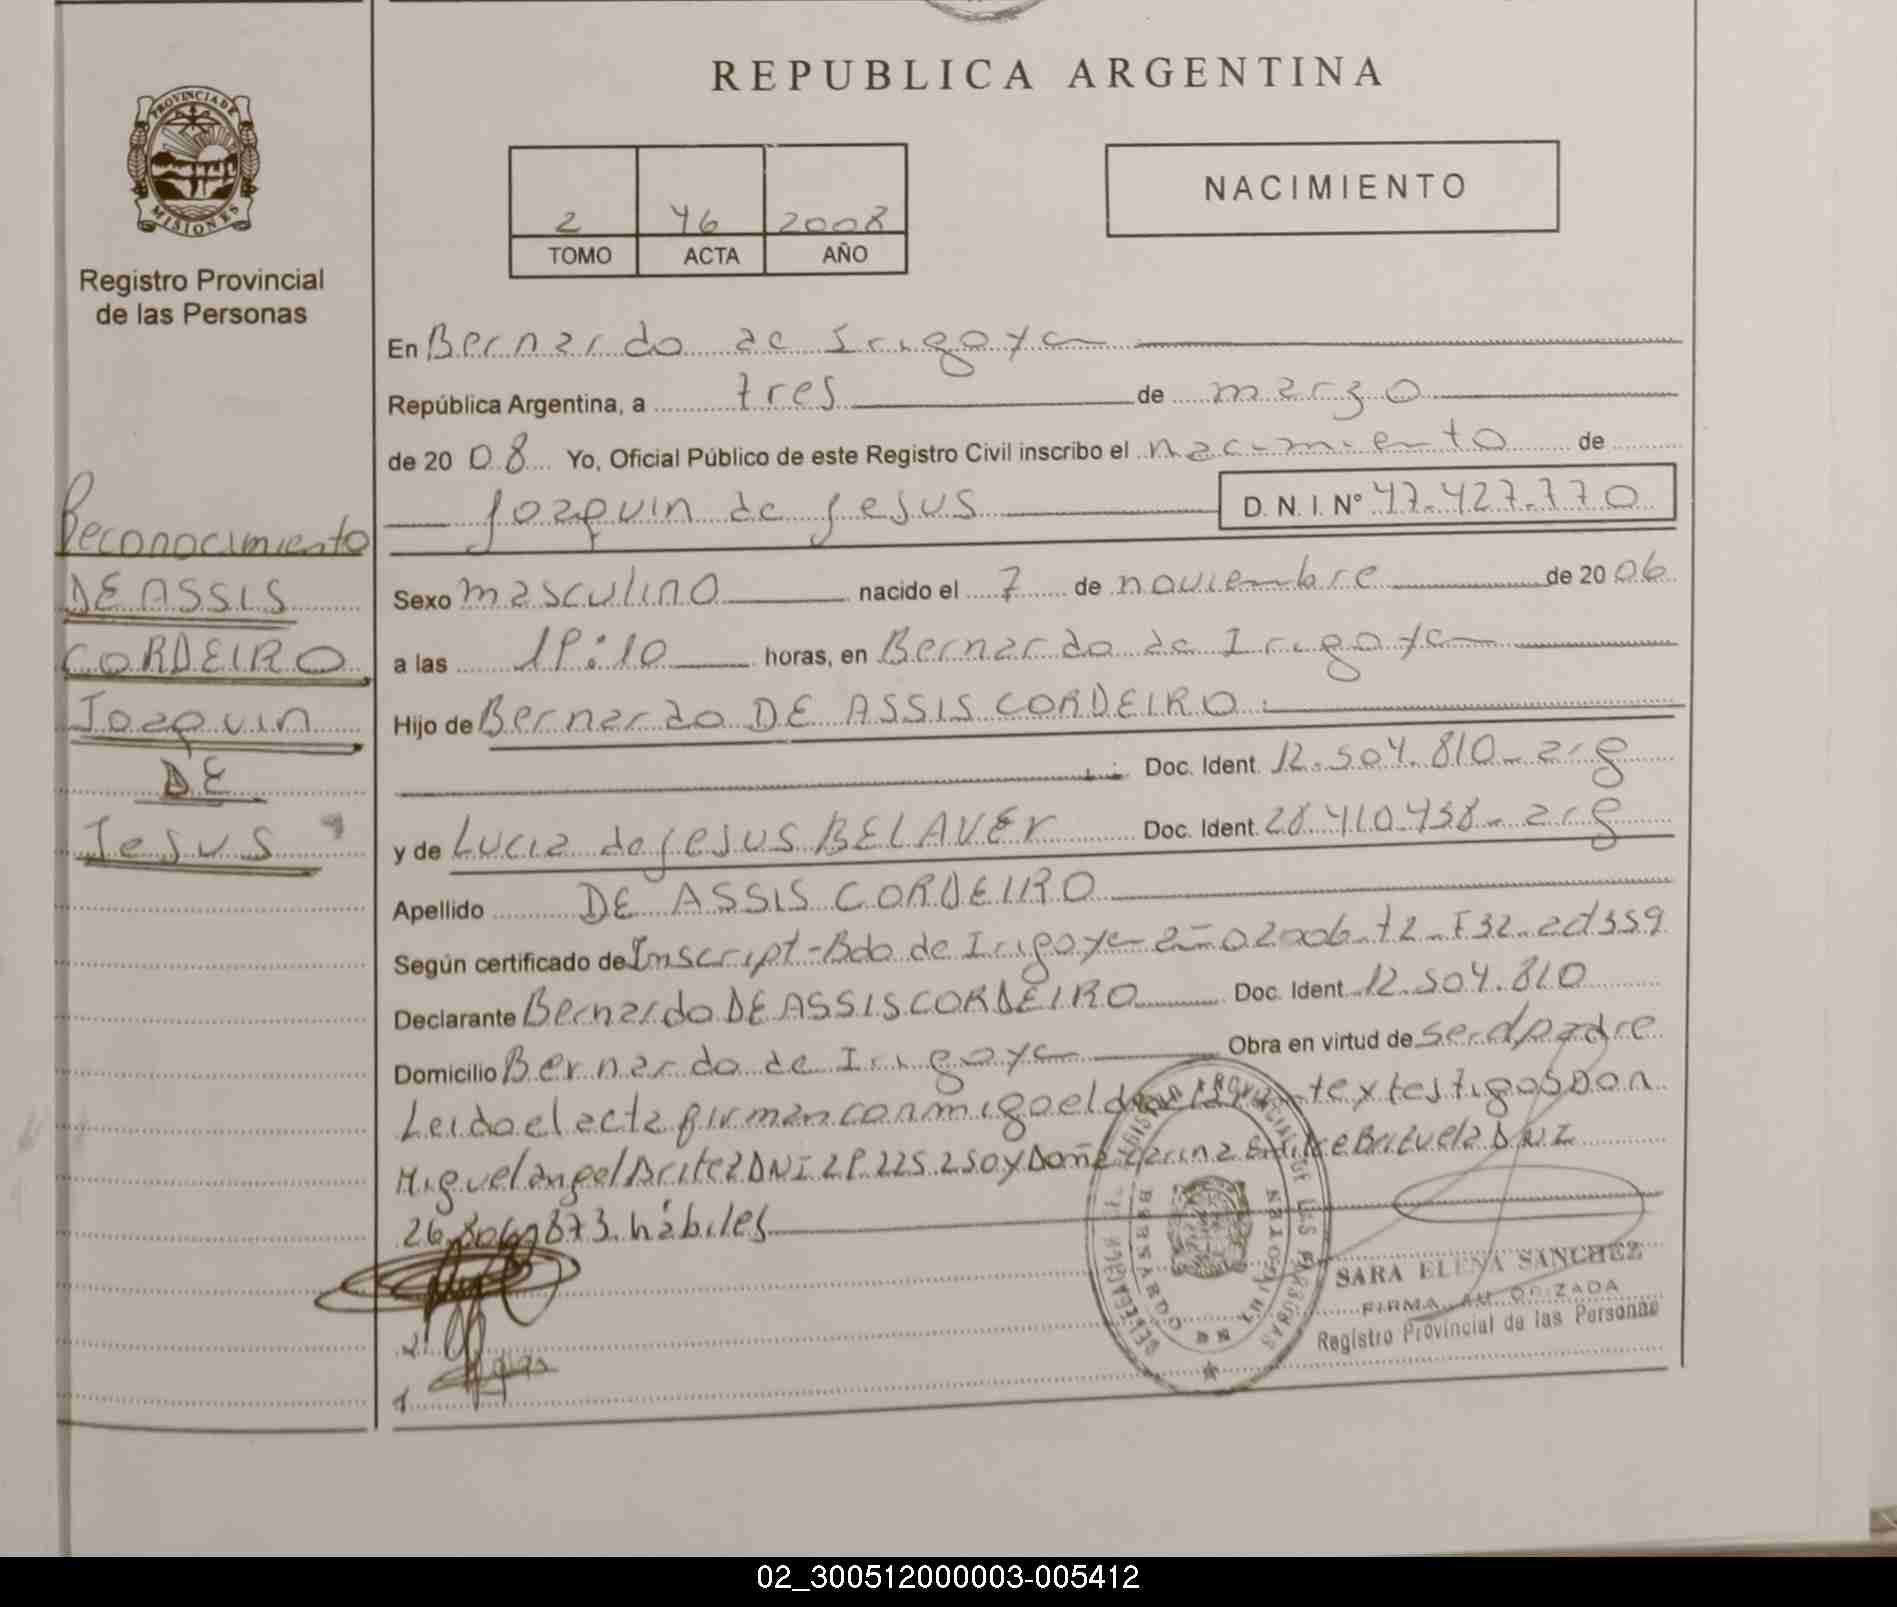 REPUBLICA ARGENTINA
PROVINCIA DE
MISIONES
Registro Provincial
de las Personas
NACIMIENTO
2 46 2008
TOMO ACTA AÑO
Reconocimiento
DE ASSIS
CORDEIRO
Joaquin
DE
Jesus
En Bernardo de Irigoyen
República Argentina, a tres de marzo
de 20 08 Yo, Oficial Público de este Registro Civil inscribo el nacimiento de
Joaquin de Jesus D.N.I. Nº 47.427.770
Sexo masculino nacido el 7 de noviembre de 2006
a las 19:10 horas, en Bernardo de Irigoyen
Hijo de Bernardo DE ASSIS CORDEIRO
Doc. Ident. 12.504.810 - arg
y de Lucia de Jesus BELAVER Doc. Ident. 28.410.438 - arg
Apellido DE ASSIS CORDEIRO
Según certificado de Inscript - Bdo de Irigoyen año 2006 - t2 - F32 - ad359
Declarante Bernardo DE ASSIS CORDEIRO Doc. Ident 12.504.810
Domicilio Bernardo de Irigoyen Obra en virtud de ser el padre
Leido el acta firman conmigo el declarante y testigos Don
Miguel angel Britez DNI 29.225.250 y Doña Brizuela DNI
26. 873. hábiles
2
1
REGISTRO PROVINCIAL DE LAS PERSONAS
SARA ELENA SANCHEZ
FIRMA AUTORIZADA
Registro Provincial de las Personas
02_300512000003-005412